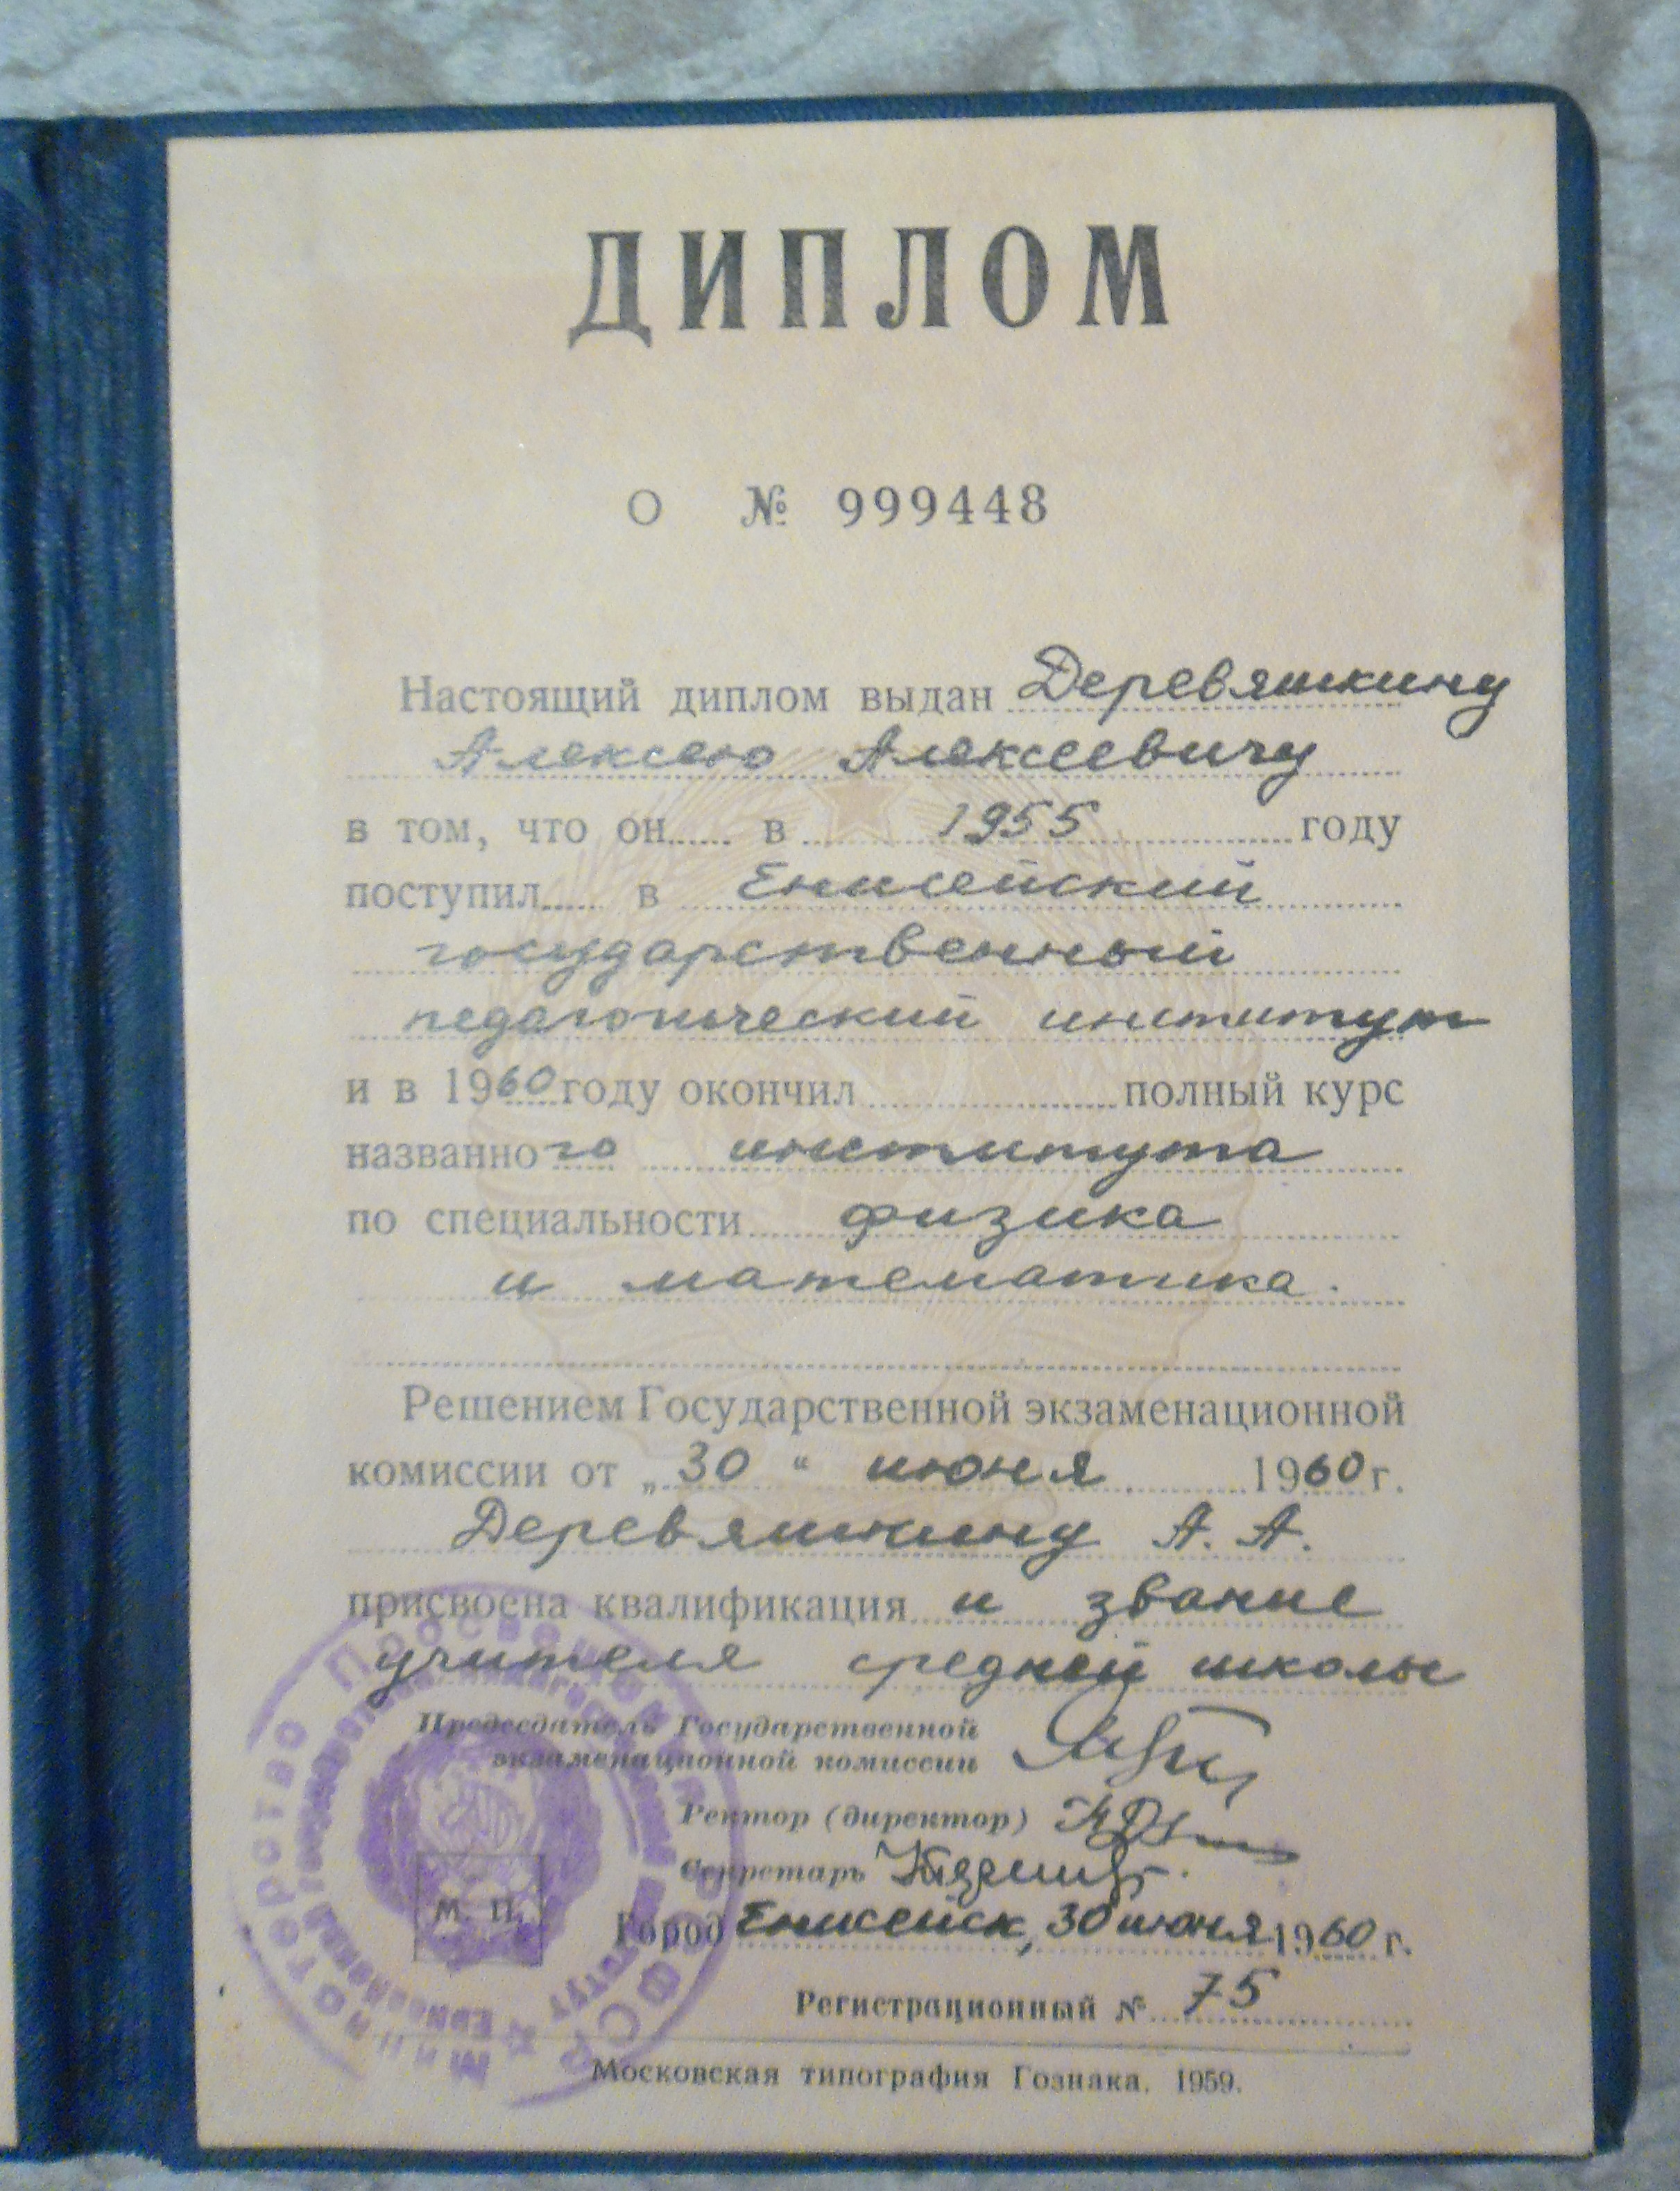 ДИПЛОМ
О № 999448
Настоящий диплом выдан Деревяшкину
Алексею Алексеевичу
в том, что он в 1955 году
поступил в Енисейский
государственный
педагогический институт
и в 1960 году окончил полный курс
названного института
по специальности физика
и математика.
Решением Государственной экзаменационной
комиссии от „30“ июня 1960 г.
Деревяшкину А. А.
присвоена квалификация и звание
учителя средней школы
Председатель Государственной
экзаменационной комиссии
Ректор (директор)
Секретарь
М. П.
Город Енисейск, 30 июня 1960 г.
Регистрационный № 75
Московская типография Гознака. 1959.
Министерство Просвещения РСФСР